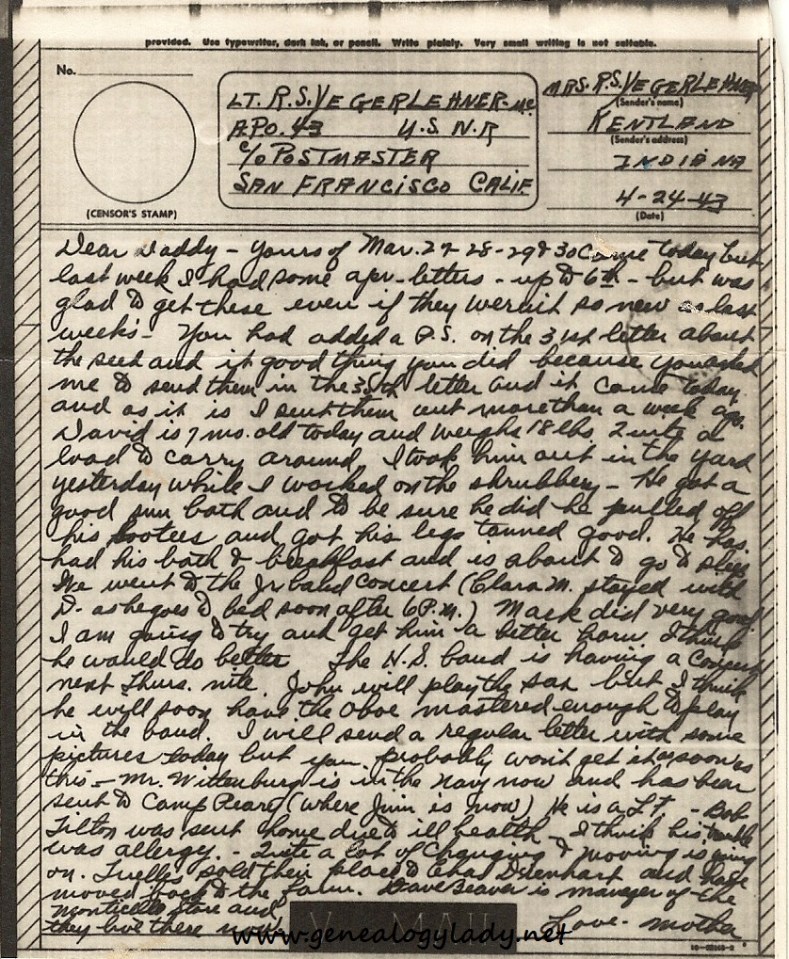 provided. Use typewriter, dark ink, or pencil. Write plainly. Very small writing is not suitable.
No.
(CENSOR'S STAMP)
LT. R.S. VEGERLEHNER-MC
A.P.O. 43 U.S.N.R
c/o POSTMASTER
SAN FRANCISCO CALIF.
MRS. R.S. VEGERLEHNER
(Sender's name)
KENTLAND
(Sender's address)
INDIANA
4-24-43
(Date)
Dear Daddy - Yours of Mar. 27-28-29 & 30 came today but
last week I had some apr. letters - up to 6th - but was
glad to get these even if they weren't so new as last
weeks - You had added a P.S. on the 31st letter about
the seed and it good thing you did because you asked
me to send them in the 30th letter and it came today
and as it is I sent them out more than a week ago.
David is 7 mo. old today and weighs 18 lbs 2 quite a
load to carry around. I took him out in the yard
yesterday while I worked on the shrubbery - He got a
good sun bath and to be sure he did he pulled off
his bootees and got his legs tanned good. He has
had his bath & breakfast and is about to go to sleep
We went to the Jr band concert (Clara M. stayed with
D- as he goes to bed soon after 6 P.M.) Mark did very good
I am going to try and get him a better horn I think
he would do better The H.S. band is having a concert
next Thurs. nite. John will play the sax but I think
he will soon have the Oboe mastered enough to play
in the band. I will send a regular letter with some
pictures today but you probably won't get it as soon as
this - Mr. Wittenburg is in the Navy now and has been
sent to Camp Peary (where Jim is now) He is a Lt - Bob
Tilton was sent home due to ill health - I think his trouble
was allergy. - Quite a lot of changing & moving is going
on. sold their place to Chas and have
moved back to the farm. Dave Beaver is manager of the
Monticello store and
they live there now.
Love - Mother
V - MAIL
www.genealogylady.net